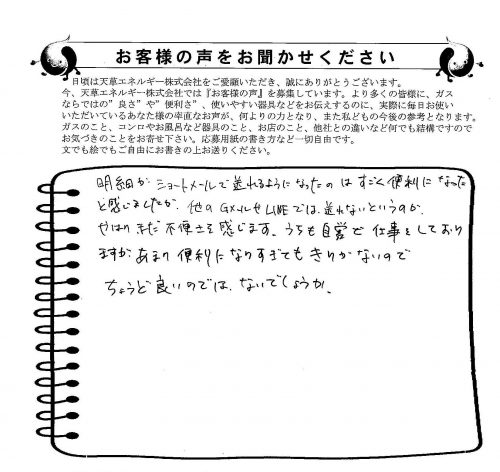 お客様の声をお聞かせください
日頃は天草エネルギー株式会社をご愛顧いただき、誠にありがとうございます。
今、天草エネルギー株式会社では『お客様の声』を募集しています。より多くの皆様に、ガス
ならではの”良さ”や”便利さ”、使いやすい器具などをお伝えするのに、実際に毎日お使い
いただいているあなた様の率直なお声が、何よりの力となり、また私どもの今後の参考となります。
ガスのこと、コンロやお風呂など器具のこと、お店のこと、他社との違いなど何でも結構ですので
お気づきのことをお寄せ下さい。応募用紙の書き方など一切自由です。
文でも絵でもご自由にお書きの上お送りください。
明細が ショートメールで送れるようになったのは すごく便利になった
と感じましたが、他のGメールやLINEでは送れないというのが、
やはりまだ不便さを感じます。うちも自営で仕事をしており
ますが あまり便利になりすぎても きりがないので
ちょうど良いのでは、ないでしょうか。